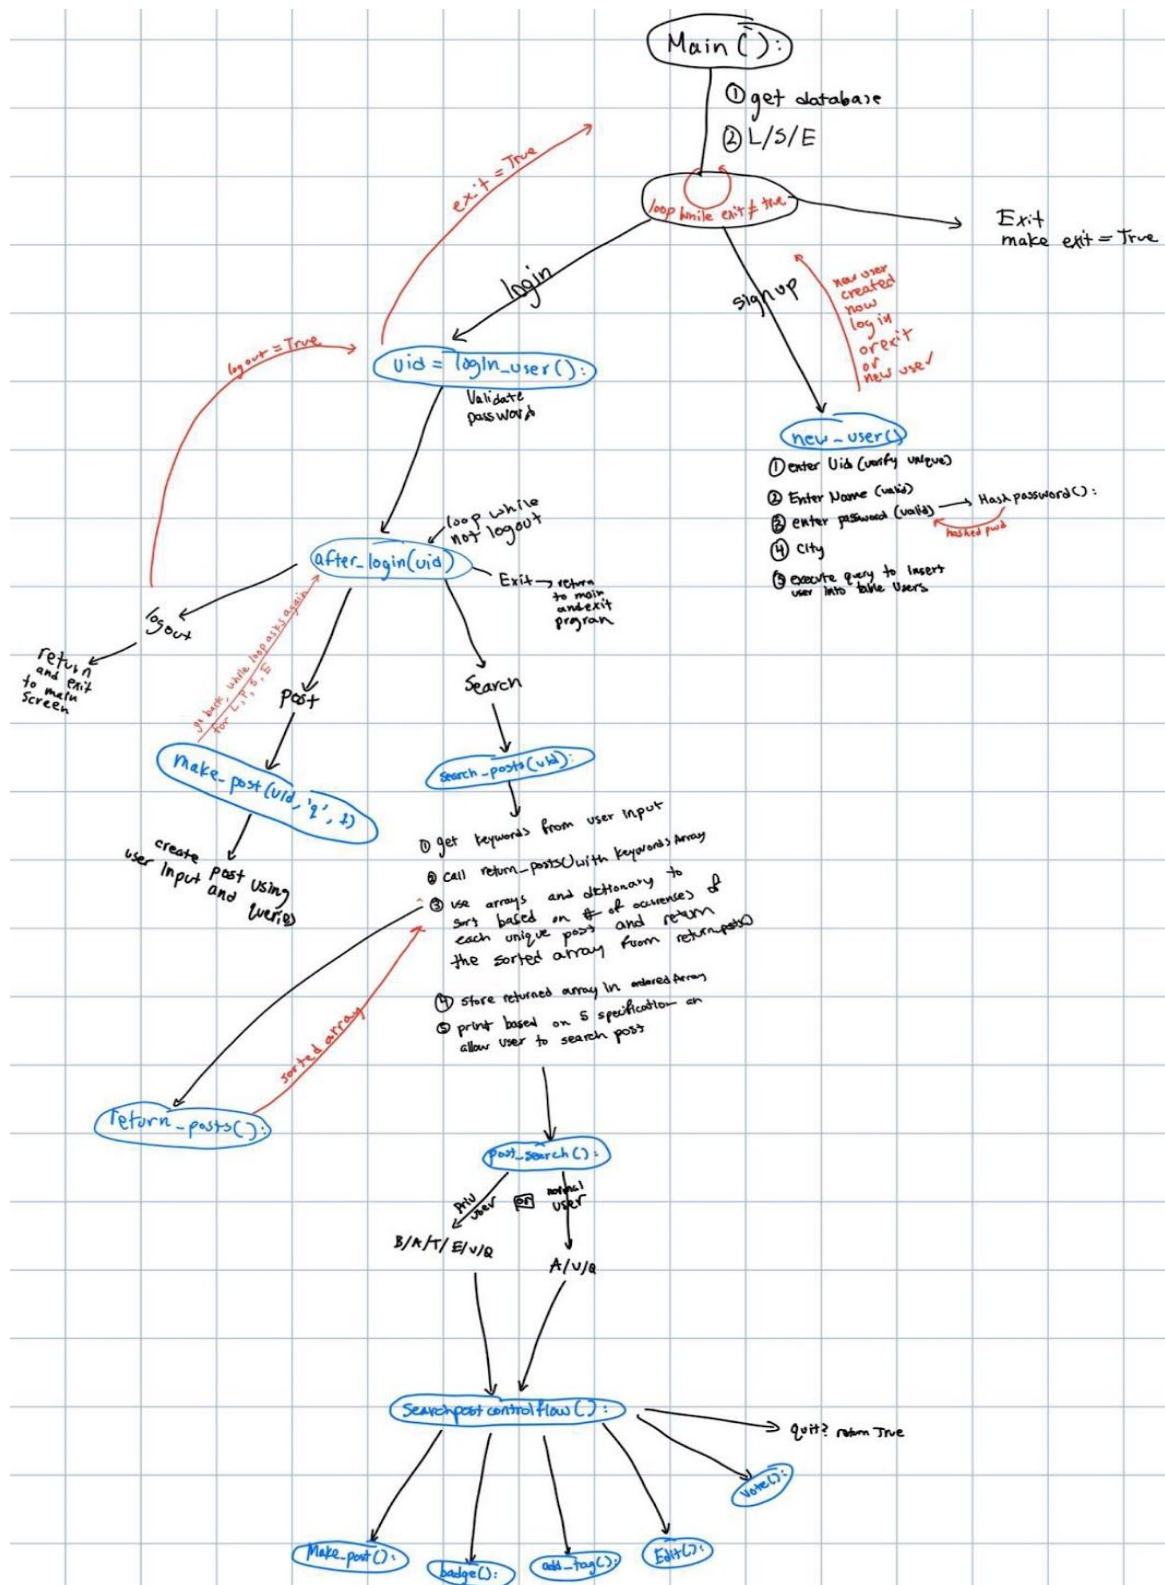 Main():
① get database
② L/S/E
exit = True
loop while exit ≠ true
Exit
make exit = True
login
sign up
new user
created
now
log in
or exit
or
new user
logout = True
uid = login_user():
Validate
password
new_user()
① enter Uid (verify unique)
② Enter Name (valid)
③ enter password (valid)
Hash password():
hashed pwd
④ City
⑤ execute query to insert
user into table Users
loop while
not logout
after_login(uid)
Exit → return
to main
and exit
program
logout
return
and exit
to main
screen
go back, while loop asks again
for L, P, S, E
Post
Search
make_post(uid, 'q', 1)
search_posts(uid):
create post using
user input and
queries
① get keywords from user input
② call return_posts() with keywords Array
③ use arrays and dictionary to
sort based on # of occurenses of
each unique post and return
the sorted array from return_posts()
④ store returned array in orderedArray
⑤ print based on 5 specification an
allow user to search post
sorted array
return_posts():
post_search():
priv
user
or
normal
user
B/A/T/E/V/Q
A/V/Q
Searchpostcontrolflow():
quit? return True
vote():
Make_post():
badge():
add_tag():
Edit():